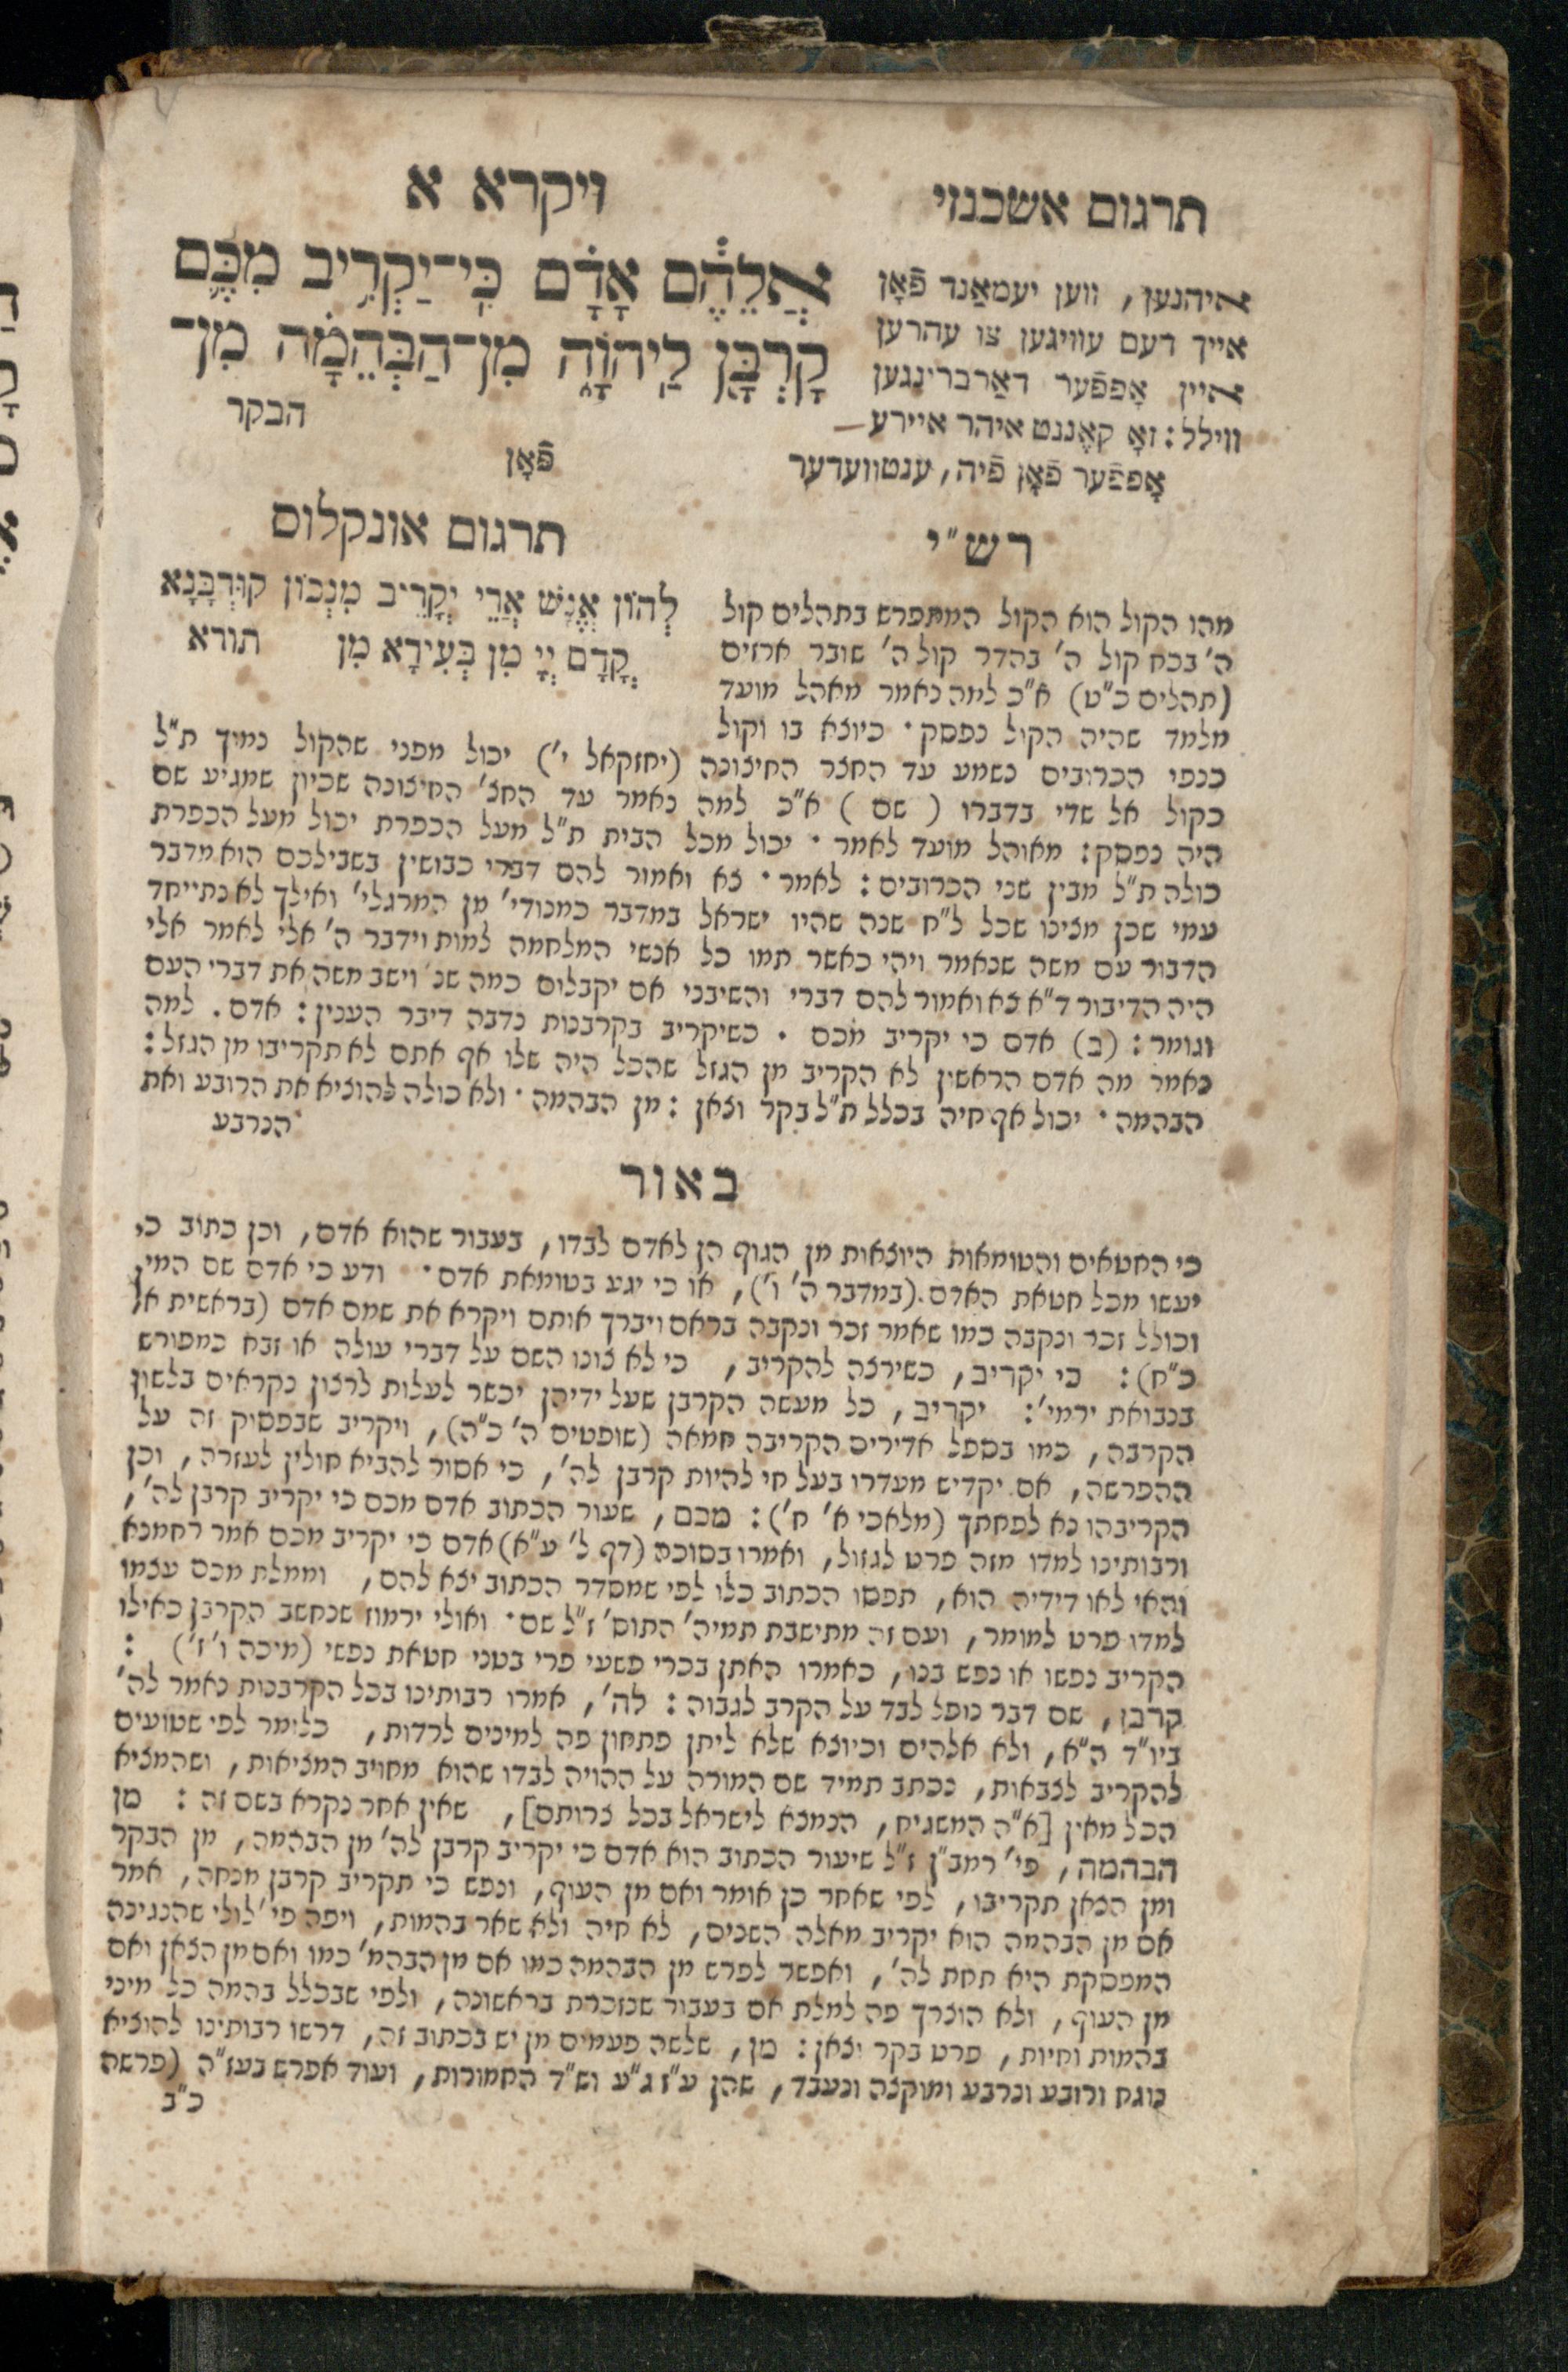 תרגום אשכנזי
ויקרא א
אֲלֵהֶ֔ם אָדָ֗ם כִּֽי־יַקְרִ֥יב מִכֶּ֛ם
קָרְבָּ֖ן לַֽיהוָֹ֑ה מִן־הַבְּהֵמָ֗ה מִן־
הבקר
איהנען, ווען יעמאַנד פֿאָן
אייך דעם עוויגען צו עהרען
איין אָפּפֿער דאַרברינגען
ווילל: זאָ קאֶננט איהר אייערע
אָפּפֿער פֿאָן פֿיה, ענטוועדער
פֿאָן
תרגום אונקלוס
לְהוֹן אֱנָשׁ אֲרֵי יְקָרֵיב מִנְכוֹן קוּרְבָּנָא
קֳדָם יְיָ מִן בְּעִירָא מִן תורא
רש"י
מהו הקול הוא הקול המתפרש בתהלים קול
ה' בכח קול ה' בהדר קול ה' שובר ארזים
(תהלים כ"ט) א"כ למה נאמר מאהל מועד
מלמד שהיה הקול נפסק· כיוצא בו וקול
כנפי הכרובים נשמע עד החצר החיצונה (יחזקאל י') יכול מפני שהקול נמוך ת"ל
כקול אל שדי בדברו (שם) א"כ למה נאמר עד החצ' החיצונה שכיון שמגיע שם
היה נפסק: מאוהל מועד לאמר· יכול מכל הבית ת"ל מעל הכפרת יכול מעל הכפרת
כולה ת"ל מבין שני הכרובים: לאמר· צא ואמור להם דברי כבושין בשבילכם הוא מדבר
עמי שכן מצינו שכל ל"ח שנה שהיו ישראל במדבר כמנודי' מן המרגלי' ואילך לא נתייחד
הדבור עם משה שנאמר ויהי כאשר תמו כל אנשי המלחמה למות וידבר ה' אלי לאמר אלי
היה הדיבור ד"א צא ואמור להם דברי והשיבני אם יקבלום כמה שנ' וישב משה את דברי העם
וגומר: (ב) אדם כי יקריב מכם· כשיקריב בקרבנות נדבה דיבר הענין: אדם. למה
נאמר מה אדם הראשין לא הקריב מן הגזל שהכל היה שלו אף אתם לא תקריבו מן הגזל:
הבהמה· יכול אף חיה בכלל ת"ל בקר וצאן: מן הבהמה· ולא כולה להוציא את הרובע ואת
הנרבע
באור
כי החטאים והטומאות היוצאות מן הגוף הן לאדם לבדו, בעבור שהוא אדם, וכן כתוב כי
יעשו מכל חטאת האדם (במדבר ה' ו'), או כי יגע בטומאת אדם· ודע כי אדם שם המין
וכולל זכר ונקבה כמו שאמר זכר ונקבה בראם ויברך אותם ויקרא את שמם אדם (בראשית א'
כ"ח): כי יקריב, כשירצה להקריב, כי לא צונו השם על דברי עולה או זבח כמפורש
בנבואת ירמי': יקריב, כל מעשה הקרבן שעל ידיהן יכשר לעלות לרצון נקראים בלשון
הקרבה, כמו בספל אדירים הקריבה חמאה (שופטים ה' כ"ה), ויקריב שבפסוק זה על
ההפרשה, אם יקדיש מעדרו בעל חי להיות קרבן לה', כי אסור להביא חולין לעזרה, וכן
הקריבהו נא לפחתך (מלאכי א' ח'): מכם, שעור הכתוב אדם מכם כי יקריב קרבן לה',
ורבותינו למדו מזה פרט לגזול, ואמרו בסוכה (דף ל' ע"א) אדם כי יקריב מכם אמר רחמנא
והאי לאו דידיה הוא, תפסו הכתוב כלו לפי שמסדר הכתוב יצא להם, וממלת מכם עצמו
למדו פרט למומר, ועם זה מתישבת תמיה' התוס' ז"ל שם· ואולי ירמוז שנחשב הקרבן כאילו
הקריב נפשו או נפש בנו, כאמרו האתן בכרי פשעי פרי בטני חטאת נפשי (מיכה ו' ז'):
קרבן, שם דבר נופל לבד על הקרב לגבוה: לה', אמרו רבותינו בכל הקרבנות נאמר לה'
ביו"ד ה"א, ולא אלהים וכיוצא שלא ליתן פתחון פה למינים לרדות, כלומר לפי שטועים
להקריב לצבאות, נכתב תמיד שם המורה על ההויה לבדו שהוא מחויב המציאות, ושהמציא
הכל מאין [א"ה המשגיח, הנמצא לישראל בכל צרותם], שאין אחר נקרא בשם זה: מן
הבהמה, פי' רמב"ן ז"ל שיעור הכתוב הוא אדם כי יקריב קרבן לה' מן הבהמה, מן הבקר
ומן הצאן תקריבו, לפי שאחר כן אומר ואם מן העוף, ונפש כי תקריב קרבן מנחה, אמר
אם מן הבהמה הוא יקריב מאלה השנים, לא חיה ולא שאר בהמות, ויפה פי' לולי שהנגינה
המפסקת היא תחת לה', ואפשר לפרש מן הבהמה כמו אם מן הבהמ' כמו ואם מן הצאן ואם
מן העוף, ולא הוצרך פה למלת אם בעבור שנזכרת בראשונה, ולפי שבכלל בהמה כל מיני
בהמות וחיות, פרט בקר וצאן: מן, שלשה פעמים מן יש בכתוב זה, דרשו רבותינו להוציא
נוגח ורובע ונרבע ומוקצה ונעבד, שהן ע"ז ג"ע וש"ד החמורות, ועוד אפרש בעז"ה (פרשה
כ"ב